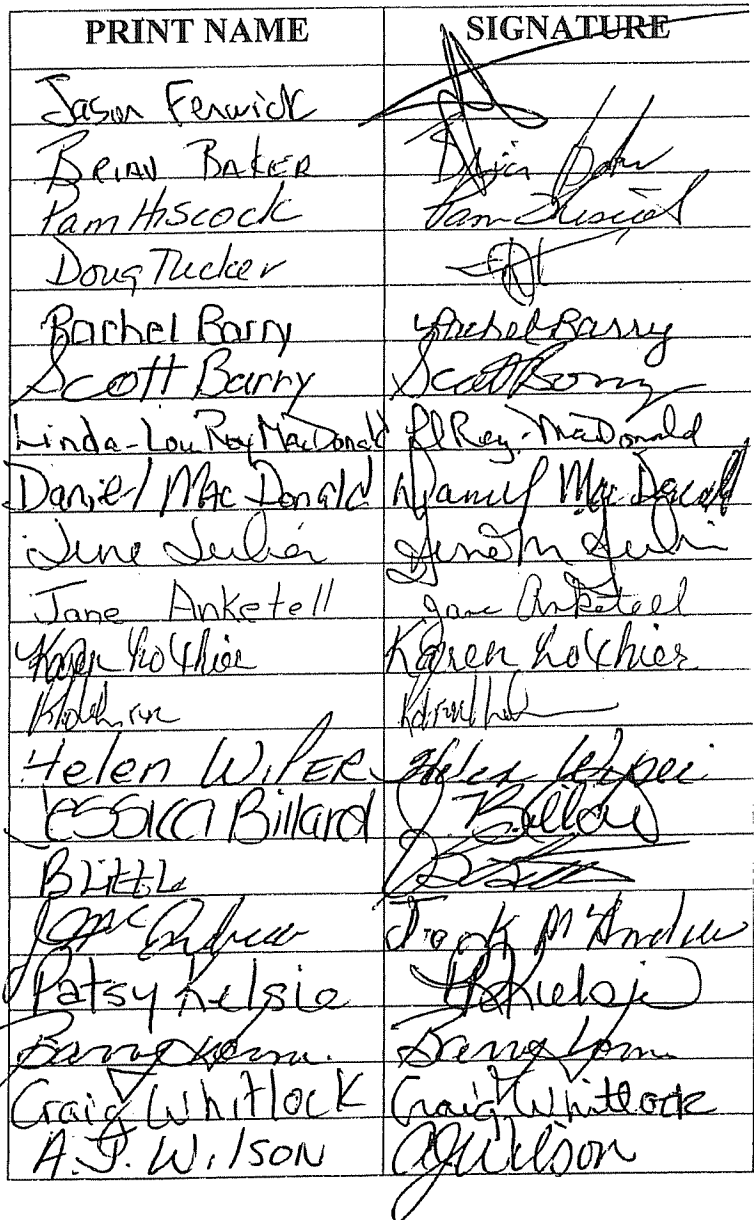 PRINT NAME SIGNATURE
Jason Fenwick
BRIAN BAKER Brian
Pam Hiscock Pam Hiscock
Doug Tucker
Rachel Barry Rachel Barry
Scott Barry Scott Barry
Linda-Lou Roy MacDonald LlRoy-MacDonald
Daniel MacDonald Daniel MacDonald
June Julian June M Julian
Jane Anketell Jane Anketell
Karen Karen
Helen WIPER Helen Wiper
Jessica Billard J. Billard
B Little
McAndrew
Patsy Kelsie P Kelsie
Barry Barry
Craig Whitlock Craig Whitlock
A.J. Wilson AJ Wilson